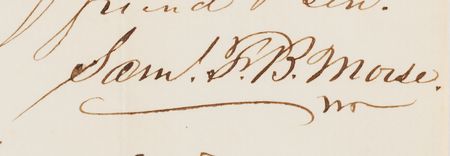 friend & serv.
Saml. F. B. Morse.